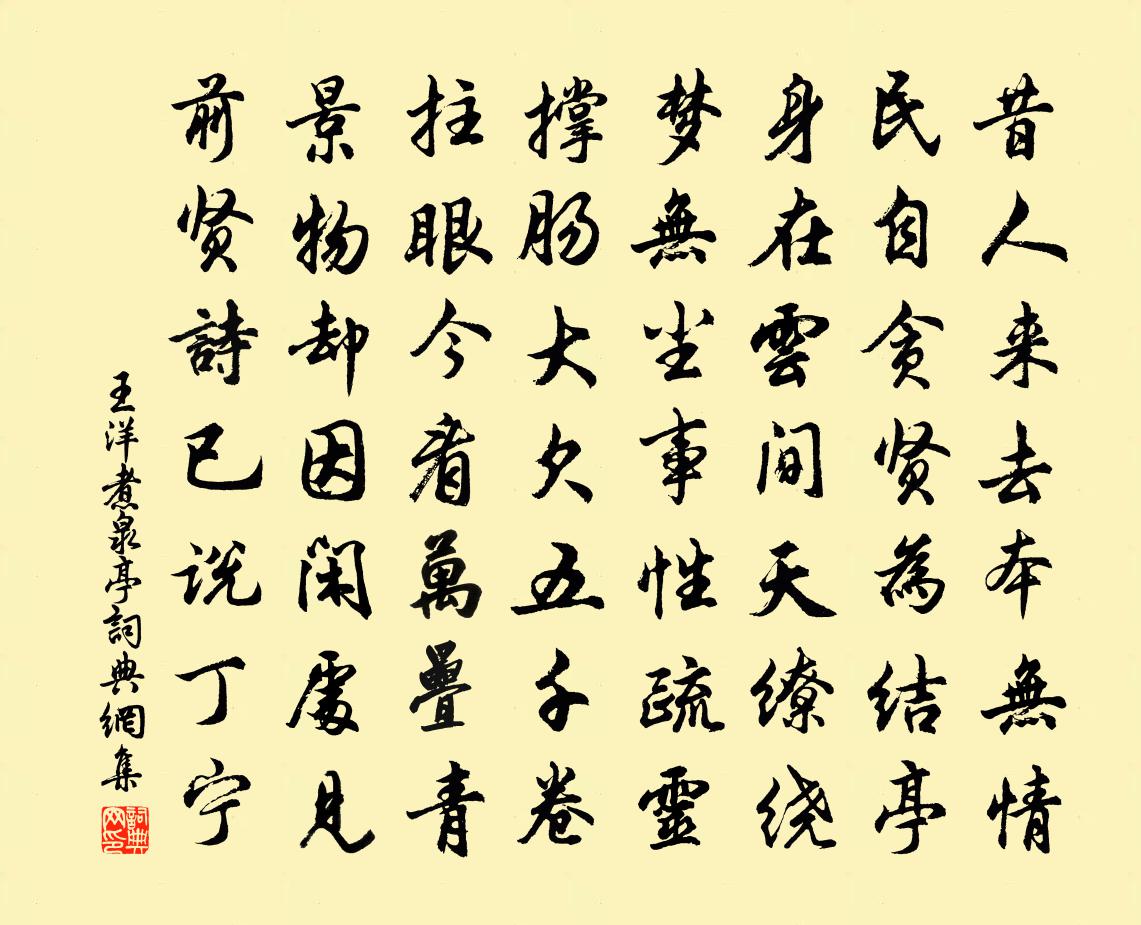 昔人来去本無情
民自贪贤為结亭
身在雲间天缭绕
梦無尘事性疏靈
撑肠大欠五千卷
拄眼今看萬疊青
景物却因闲處見
前贤詩已说丁宁
王洋煮泉亭詞典網集
詞典网印